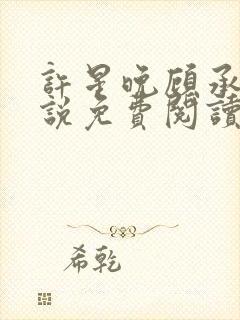 許星晚顧承
說免費閱讀
希乾